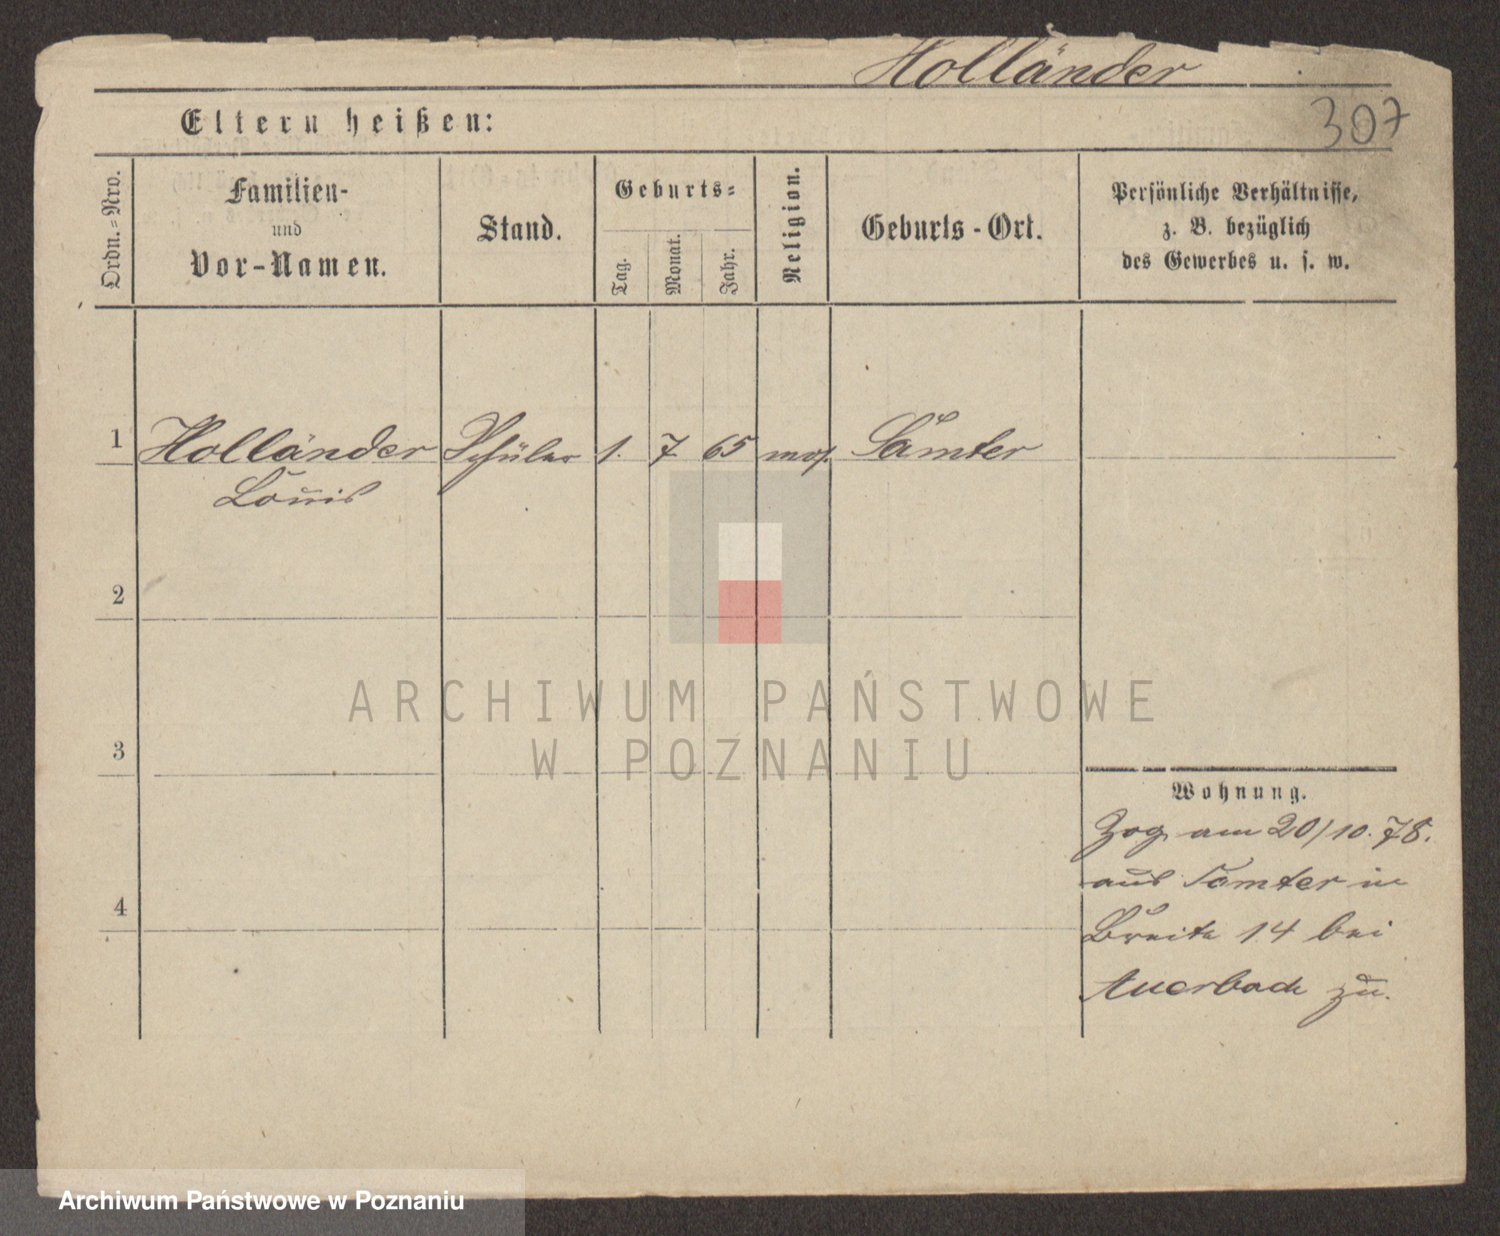 Holländer
307
Eltern heißen:
Ordn.=Nro.
Familien-
und
Vor-Namen.
Stand.
Geburts=
Tag.
Monat.
Jahr.
Religion.
Geburts-Ort.
Persönliche Verhältnisse,
z. B. bezüglich
des Gewerbes u. s. w.
1 Holländer Schüler 1. 7 65 mos. Samter
Louis
2
3
4
Wohnung.
Zog am 20/10.78.
aus Samter in
Breite 14 bei
Auerbach zu.
ARCHIWUM PAŃSTWOWE
W POZNANIU
Archiwum Państwowe w Poznaniu